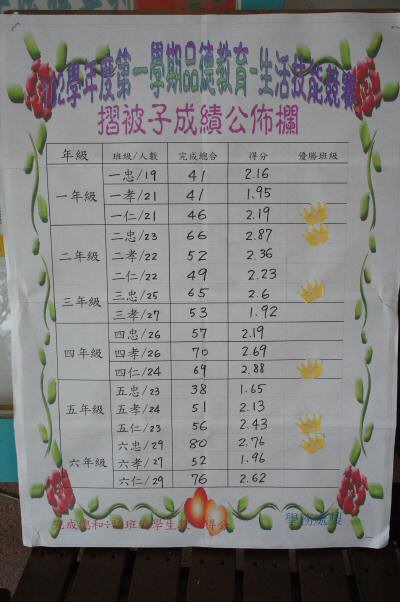 102學年度第一學期品德教育-生活技能競賽
摺被子成績公佈欄
年級 班級/人數 完成總合 得分 優勝班級
一年級
一忠/19 41 2.16
一孝/21 41 1.95
一仁/21 46 2.19
二年級
二忠/23 66 2.87
二孝/22 52 2.36
二仁/22 49 2.23
三年級
三忠/25 65 2.6
三孝/27 53 1.92
四年級
四忠/26 57 2.19
四孝/26 70 2.69
四仁/24 69 2.88
五年級
五忠/23 38 1.65
五孝/24 51 2.13
五仁/23 56 2.43
六年級
六忠/29 80 2.76
六孝/27 52 1.96
六仁/29 76 2.62
完成總和÷班學生得分
學務處製